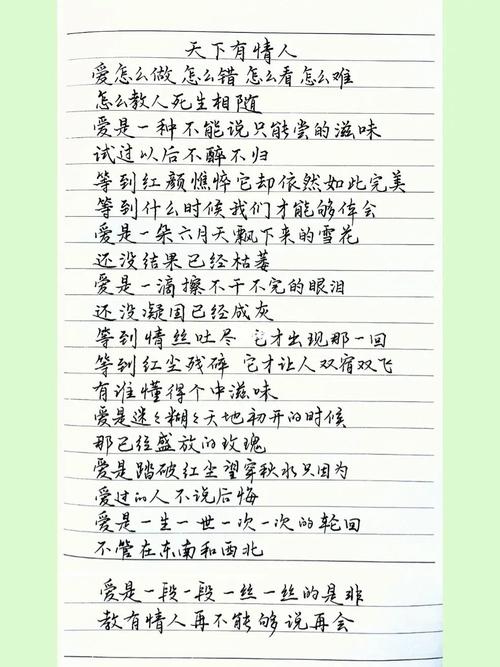 天下有情人
爱怎么做 怎么错 怎么看 怎么难
怎么教人死生相随
爱是一种不能说只能尝的滋味
试过以后不醉不归
等到红颜憔悴它却依然如此完美
等到什么时候我们才能够体会
爱是一朵六月天飘下来的雪花
还没结果已经枯萎
爱是一滴擦不干不完的眼泪
还没凝固已经成灰
等到情丝吐尽 它才出现那一回
等到红尘残碎 它才让人双宿双飞
有谁懂得个中滋味
爱是迷々糊々天地初开的时候
那已经盛放的玫瑰
爱是踏破红尘望穿秋水只因为
爱过的人不说后悔
爱是一生一世一次一次的轮回
不管在东南和西北
爱是一段一段一丝一丝的是非
教有情人再不能够说再会